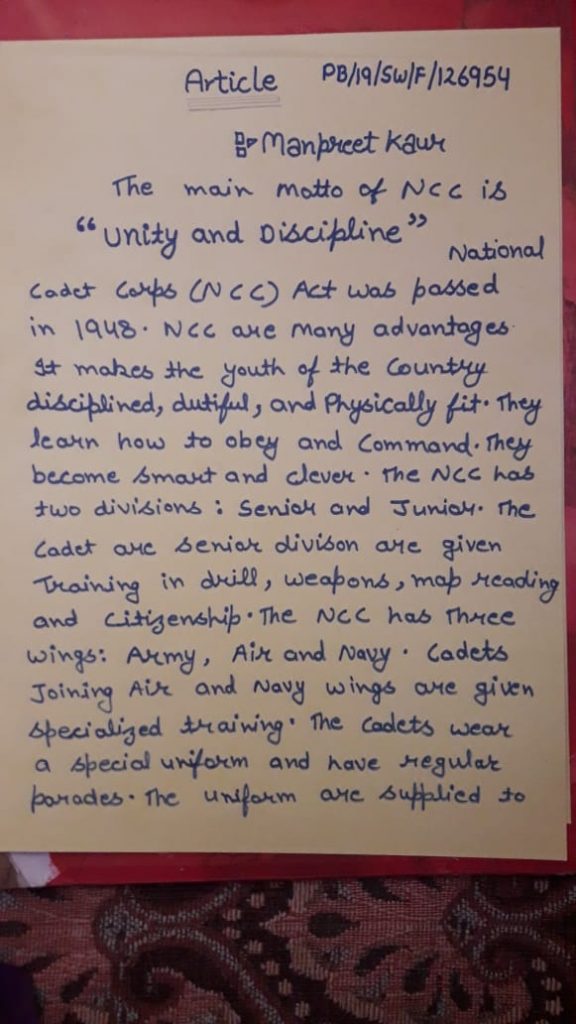 Article PB/19/SW/F/126954
Manpreet Kaur
The main motto of NCC is
“Unity and Discipline”
National
Cadet Corps (NCC) Act was passed
in 1948. NCC are many advantages.
It makes the youth of the Country
disciplined, dutiful, and Physically fit. They
learn how to obey and Command. They
become smart and clever. The NCC has
two divisions : Senior and Junior. The
Cadet are senior divison are given
Training in drill, weapons, map reading
and Citizenship. The NCC has Three
wings: Army, Air and Navy. Cadets
Joining Air and Navy wings are given
specialized training. The Cadets wear
a special uniform and have regular
parades. The uniform are supplied to